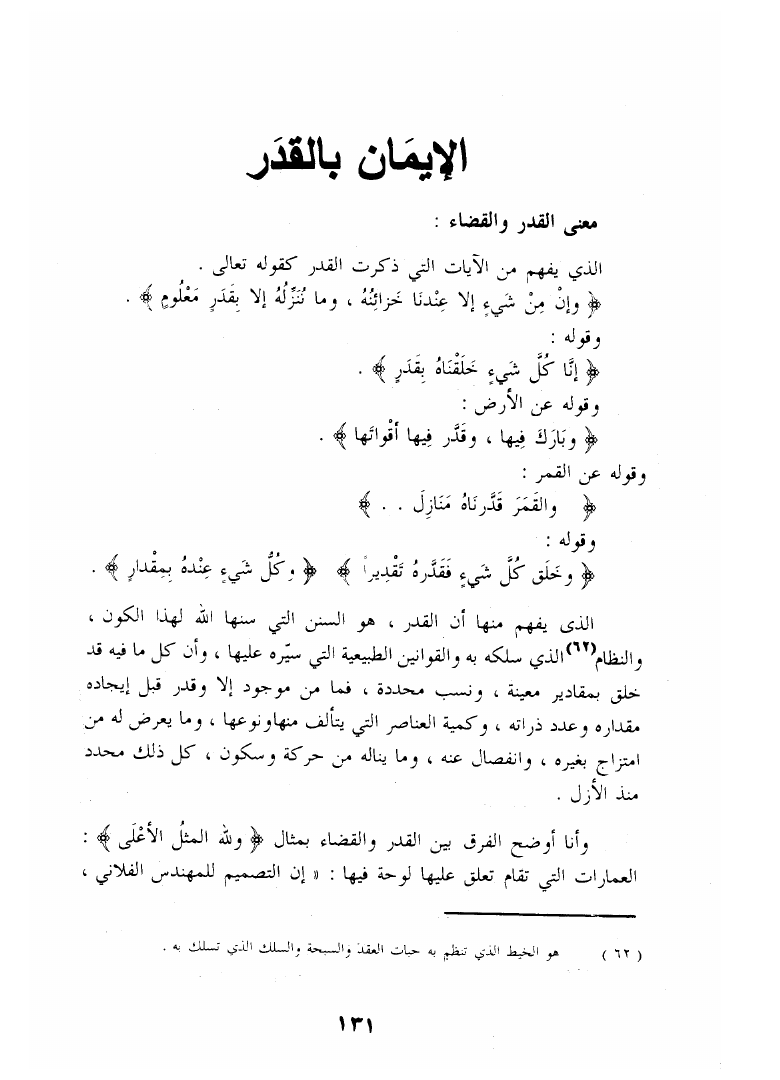 الإيمَان بالقدَر
معنى القدر والقضاء :
الذي يفهم من الآيات التي ذكرت القدر كقوله تعالى .
﴿ وإنْ مِنْ شَيءٍ إلا عِنْدنَا خَزائِنُهُ ، وما نُنَزِّلُهُ إلا بِقَدَرٍ مَعْلُومٍ ﴾ .
وقوله :
﴿ إنَّا كُلَّ شَيءٍ خَلَقْنَاهُ بِقَدَرٍ ﴾ .
وقوله عن الأرض :
﴿ وبَارَكَ فِيها ، وقَدَّر فِيها أقْواتَها ﴾ .
وقوله عن القمر :
﴿ والقَمَرَ قَدَّرنَاهُ مَنَازِلَ . . ﴾
وقوله :
﴿ وخَلَق كُلَّ شَيءٍ فَقَدَّرهُ تَقْدِيراً ﴾ ﴿ وكُلُّ شَيءٍ عِنْدهُ بِمِقْدارٍ ﴾ .
الذى يفهم منها أن القدر ، هو السنن التي سنها الله لهذا الكون ،
والنظام(٦٢)الذي سلكه به والقوانين الطبيعية التي سيّره عليها ، وأن كل ما فيه قد
خلق بمقادير معينة ، ونسب محددة ، فما من موجود إلا وقدر قبل إيجاده
مقداره وعدد ذراته ، وكمية العناصر التي يتألف منهاونوعها ، وما يعرض له من
امتزاج بغيره ، وانفصال عنه ، وما يناله من حركة وسكون ، كل ذلك محدد
منذ الأزل .
وأنا أوضح الفرق بين القدر والقضاء بمثال ﴿ ولله المثلُ الأعْلَى ﴾ :
العمارات التي تقام تعلق عليها لوحة فيها : « إن التصميم للمهندس الفلاني ،
( ٦٢ ) هو الخيط الذي تنظم به حبات العقد والسبحة والسلك الذي تسلك به .
١٣١